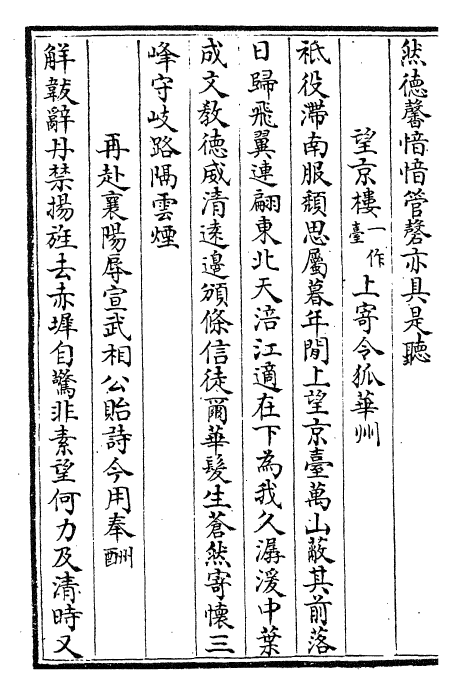 然德馨愔愔管磬亦具是聽
望京樓一作臺上寄令狐華州
祗役滯南服頹思屬暮年閒上望京臺萬山蔽其前落
日歸飛翼連翩東北天涪江適在下為我久潺湲中葉
成文教德威清遠邊頒條信徒爾華髮生蒼然寄懷三
峰守岐路隔雲煙
再赴襄陽辱宣武相公貽詩今用奉酬
解韍辭丹禁揚旌去赤墀自驚非素望何力及清時又